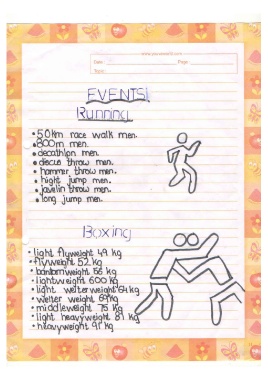 Date :
Page :
Topic :
EVENTS!
Running
• 50km race walk men.
• 800m men.
• decathlon men.
• discus throw men.
• hammer throw men.
• hight jump men.
• javelin throw men.
• long jump men.
Boxing
• light flyweight 49 kg
• flyweight 52 kg
• bantomweight 56 kg
• lightweight 600 kg
• light welterweight 64 kg
• welter weight 69kg
• middleweight 75 kg
• light heavyweight 81 kg
• heavyweight 91 kg